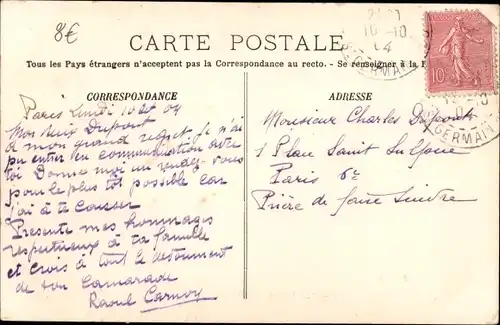 8€
CARTE POSTALE
Tous les Pays étrangers n'acceptent pas la Correspondance au recto. - Se renseigner à la
CORRESPONDANCE
Paris Lundi 10 Oct 04
Mon Dupont
à mon grand regret je n'ai
pu entrer en communication avec
toi Donne moi un rendez-vous
pour le plus tôt possible car
j'ai à te causer
Présente mes hommages
respectueux à ta famille
et crois à tout le dévouement
de ton Camarade
Raoul Carnoy
ADRESSE
Monsieur Charles Dupont
1 Place Saint Sulpice
Paris 6e
Prière de faire suivre
10
10-10
04
GERMAIN